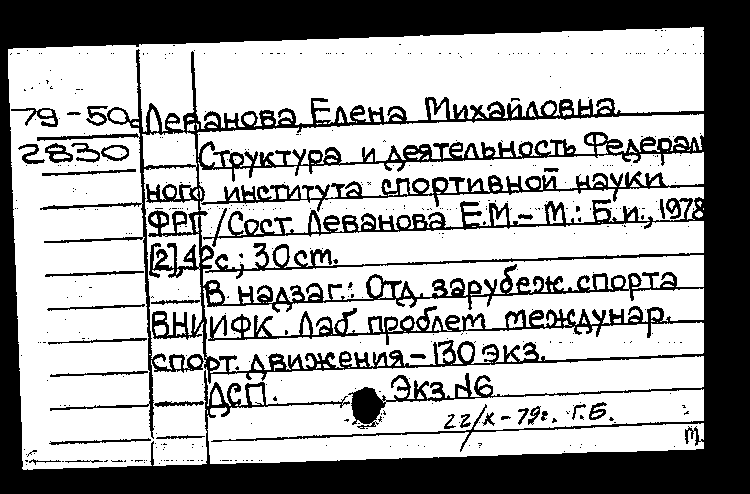 79-50с Леванова, Елена Михайловна.
2830 Структура и деятельность Федераль
ного института спортивной науки
ФРГ / Сост. Леванова Е.М. - М.: Б.и., 1978
[2], 42с.; 30 ст.
В надзаг.: Отд. зарубеж. спорта
ВНИИФК. Лаб. проблем междунар.
спорт. движения. - 130 экз.
ДСП. Экз. №6
22/X-79г. Г.Б.
м.